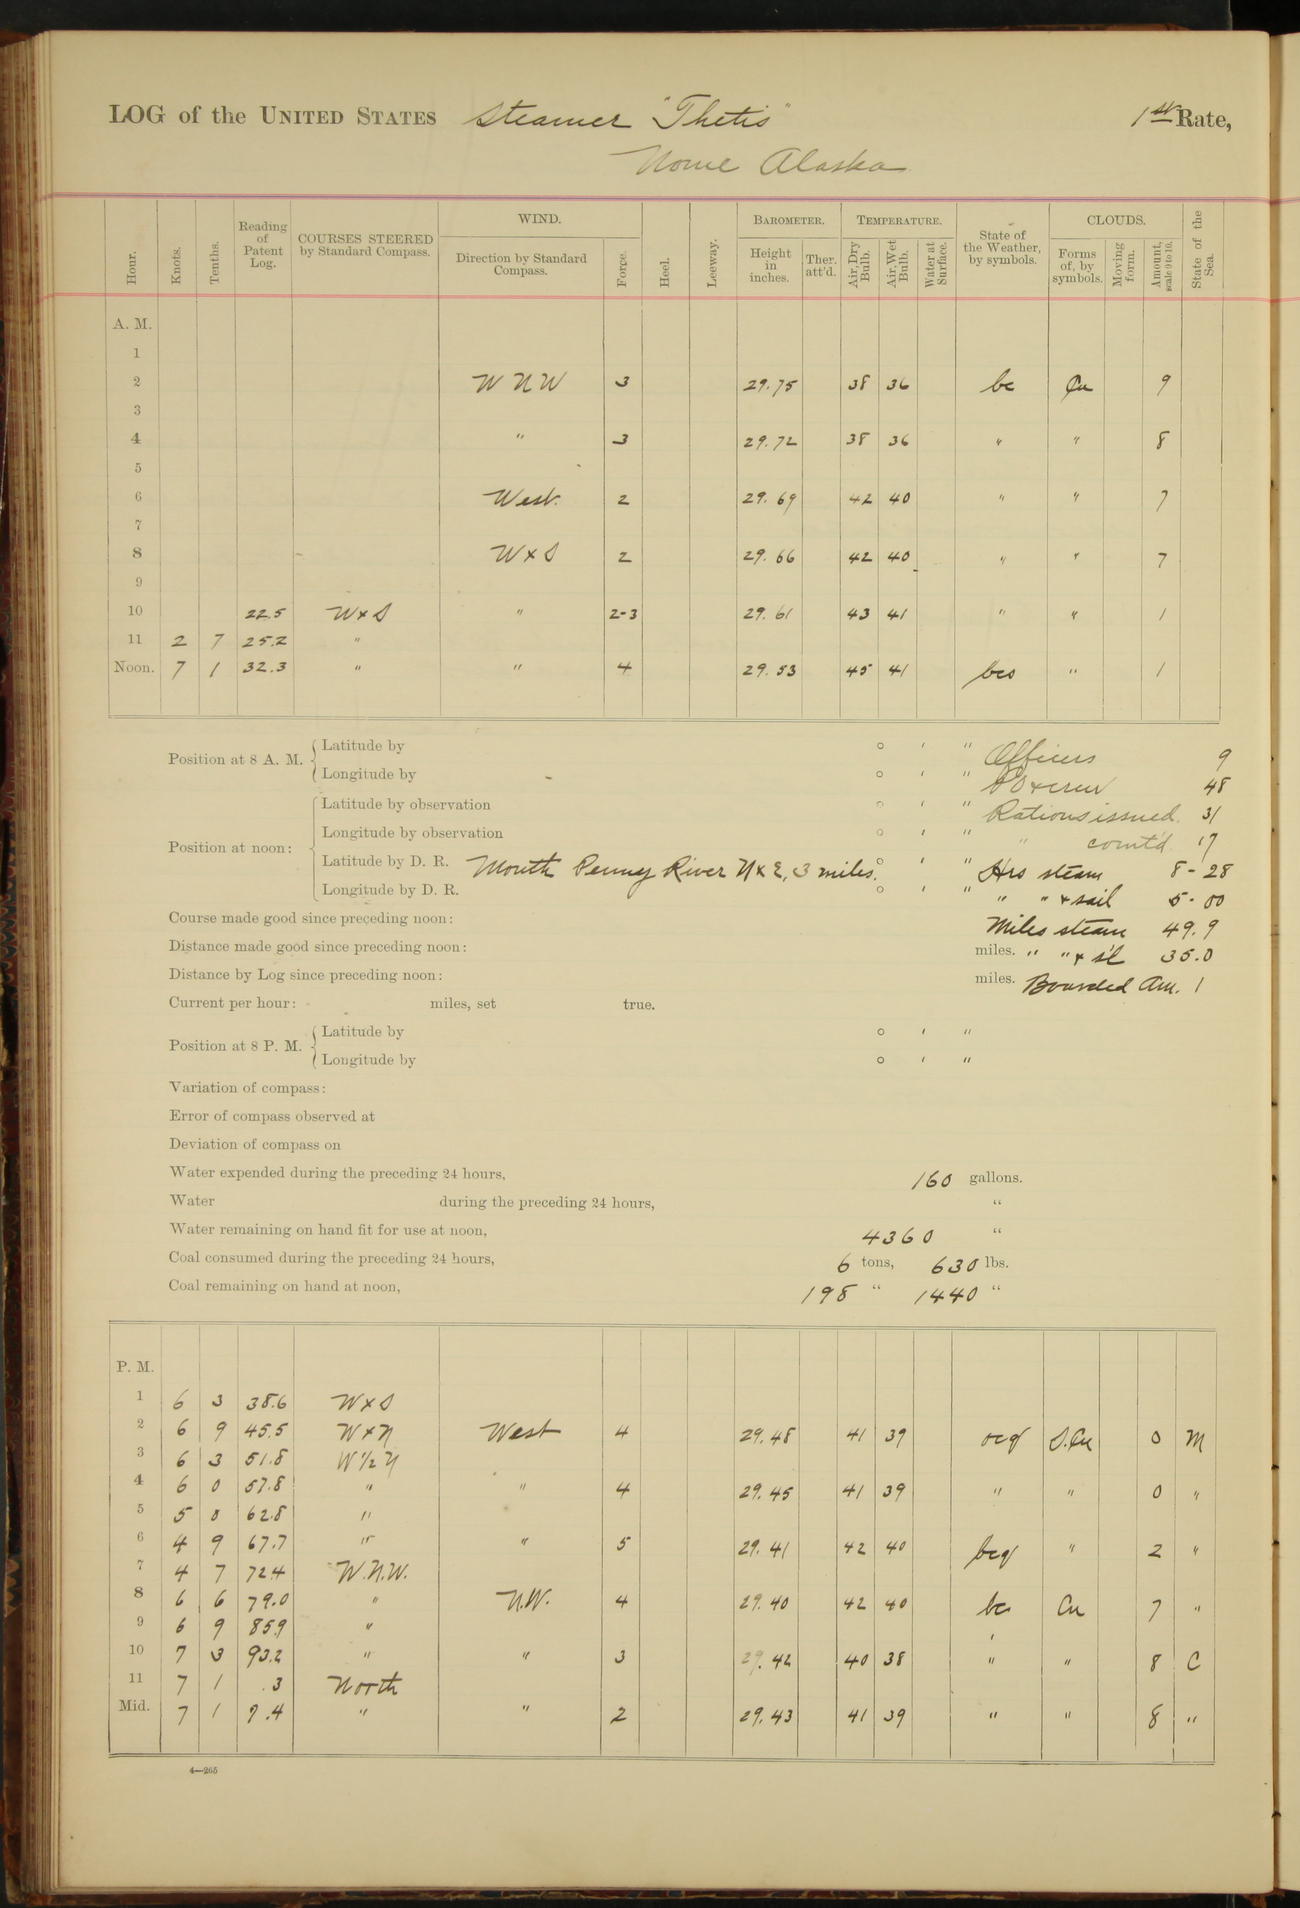 LOG of the UNITED STATES Steamer "Thetis" 1st Rate,
Nome Alaska
Hour. Knots. Tenths. Reading of Patent Log. COURSES STEERED by Standard Compass. WIND. Direction by Standard Compass. Force. Heel. Leeway. BAROMETER. Height in inches. Ther. att'd. TEMPERATURE. Air, Dry Bulb. Air, Wet Bulb. Water at Surface. State of the Weather, by symbols. CLOUDS. Forms of, by symbols. Moving form. Amount, scale 0 to 10. State of the Sea.
A. M.
1
2 WNW 3 29.75 38 36 bc Cu 9
3
4 " 3 29.72 38 36 " " 8
5
6 West. 2 29.69 42 40 " " 7
7
8 WxS 2 29.66 42 40 " " 7
9
10 22.5 WxS " 2-3 29.61 43 41 " " 1
11 2 7 25.2 "
Noon. 7 1 32.3 " " 4 29.53 45 41 bcs " 1
Position at 8 A. M. Latitude by ° ' " Officers 9
Longitude by ° ' " PO & crew 48
Position at noon: Latitude by observation ° ' " Rations issued. 31
Longitude by observation ° ' " " comt'd 17
Latitude by D. R. Mouth Penny River NxE, 3 miles. ° ' " Hrs steam 8-28
Longitude by D. R. ° ' " " " & sail 5-00
Course made good since preceding noon: Miles steam 49.9
Distance made good since preceding noon: miles. " " & s'l 35.0
Distance by Log since preceding noon: miles. Boarded Am. 1
Current per hour: miles, set true.
Position at 8 P. M. Latitude by ° ' "
Longitude by ° ' "
Variation of compass:
Error of compass observed at
Deviation of compass on
Water expended during the preceding 24 hours, 160 gallons.
Water during the preceding 24 hours, "
Water remaining on hand fit for use at noon, 4360 "
Coal consumed during the preceding 24 hours, 6 tons, 630 lbs.
Coal remaining on hand at noon, 198 " 1440 "
P. M.
1 6 3 38.6 WxS
2 6 9 45.5 WxN West 4 29.48 41 39 ocq S.Cu 0 M
3 6 3 51.8 W½N
4 6 0 57.8 " " 4 29.45 41 39 " " 0 "
5 5 0 62.8 "
6 4 9 67.7 " " 5 29.41 42 40 bcq " 2 "
7 4 7 72.4 W.N.W.
8 6 6 79.0 " N.W. 4 29.40 42 40 bc Cu 7 "
9 6 9 85.9 "
10 7 3 93.2 " " 3 29.42 40 38 " " 8 C
11 7 1 .3 North
Mid. 7 1 7.4 " " 2 29.43 41 39 " " 8 "
4—265